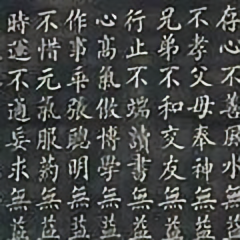 存心不善風水無益
不孝父母奉神無益
兄弟不和交友無益
行止不端讀書無益
心高氣傲博學無益
作事乖張聰明無益
不惜元氣服藥無益
時運不通妄求無益